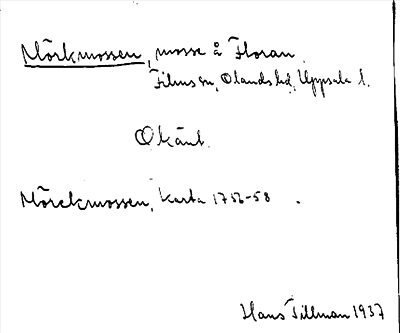 Mörkmossen, mosse å Floran.
Films sn, Olands hd, Uppsala l.
Okänt.
Mörckmossen, Karta 1756-58.
Hans Tillman 1937